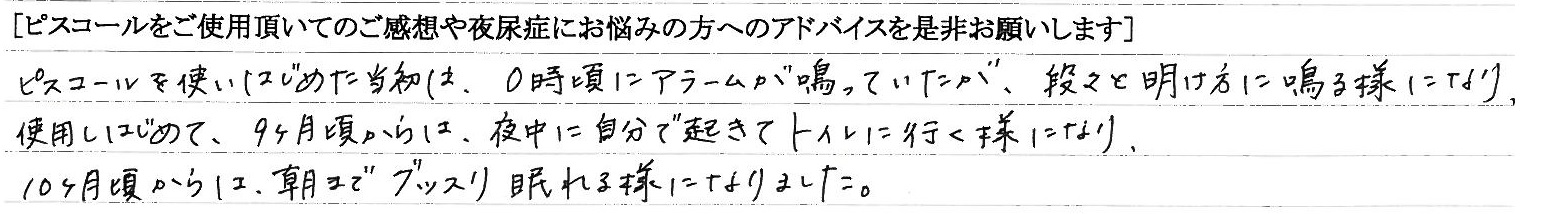 [ピスコールをご使用頂いてのご感想や夜尿症にお悩みの方へのアドバイスを是非お願いします]
ピスコールを使いはじめた当初は、0時頃にアラームが鳴っていたが、段々と明け方に鳴る様になり、
使用しはじめて、9ヶ月頃からは、夜中に自分で起きてトイレに行く様になり、
10ヶ月頃からは、朝までグッスリ眠れる様になりました。